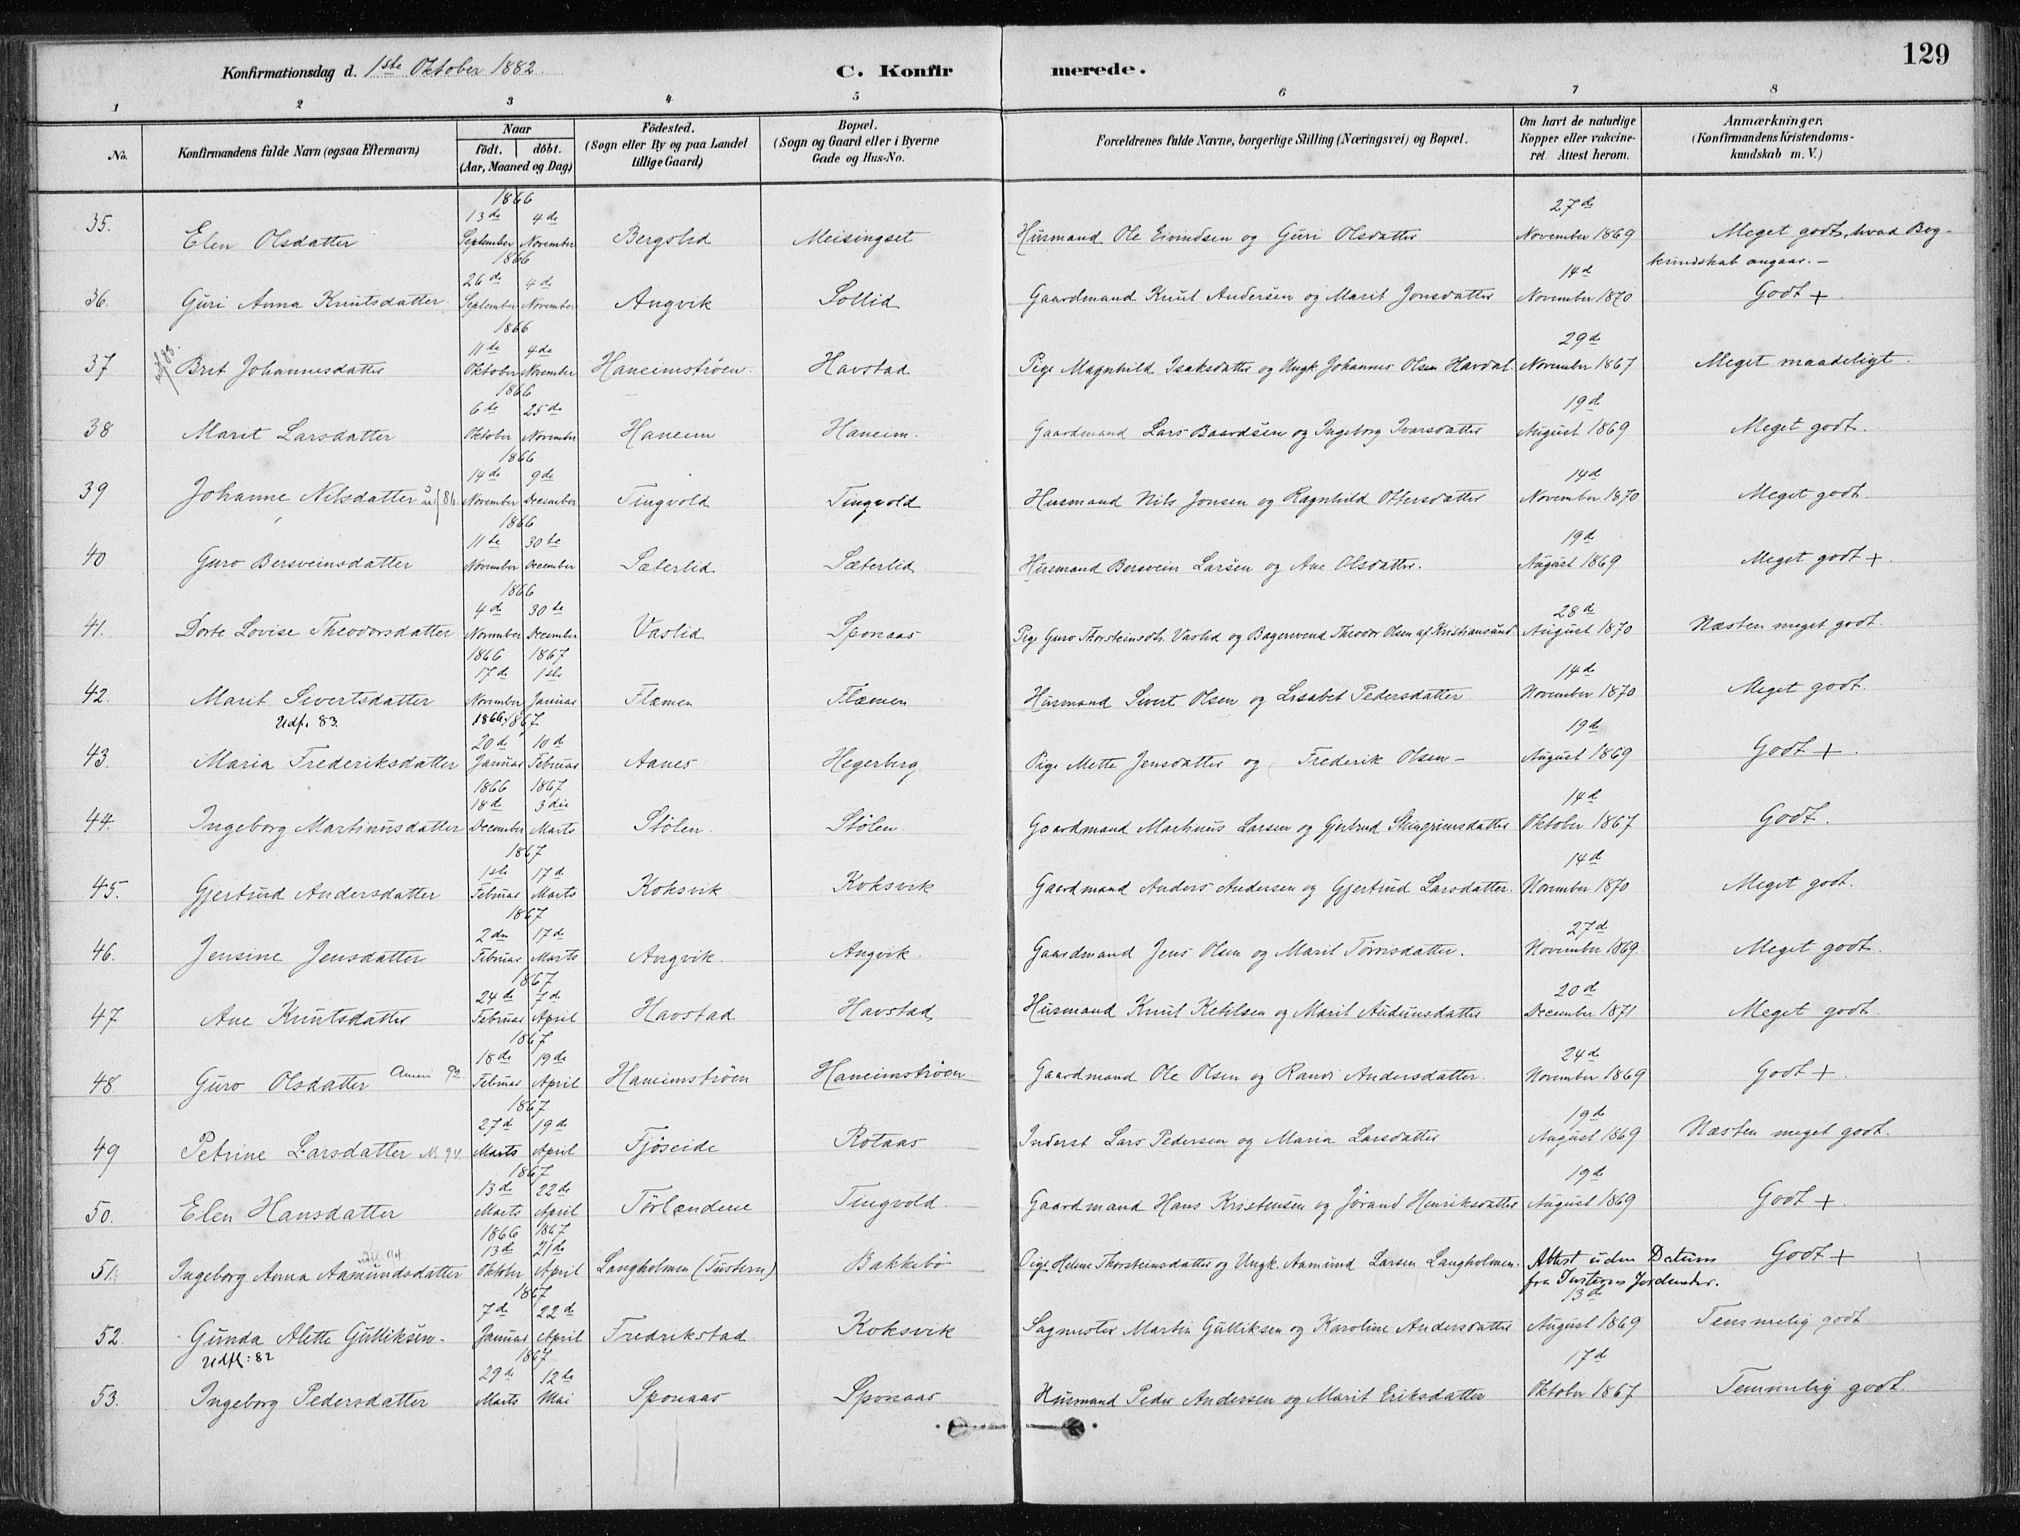 129
Konfirmationsdag d. 1ste Oktober 1882.
C. Konfirmerede.
1 2 3 4 5 6 7 8
No. | Konfirmandens fulde Navn (ogsaa Efternavn) | Naar født. døbt. (Aar, Maaned og Dag) | Fødested. (Sogn eller By og paa Landet tillige Gaard) | Bopæl. (Sogn og Gaard eller i Byerne Gade og Hus-No. | Forældrenes fulde Navne, borgerlige Stilling (Næringsvei) og Bopæl. | Om havt de naturlige Kopper eller vakcineret. Attest herom. | Anmærkninger. (Konfirmandens Kristendomskundskab m. V.)
35. Elen Olsdatter | 1866 13de September 4de November | Bergslid | Meisingset | Husmand Ole Eivindsen og Guri Olsdatter | 27de November 1869 | Meget godt, hvad Bogkundskab angaar. –
36. Guri Anna Knutsdatter | 1866 26de September 4de November | Angvik | Sollid | Gaardmand Knut Andersen og Marit Jonsdatter | 14d November 1870 | Godt +.
37 Brit Johannesdatter | 1866 11te Oktober 4de November | Haneimstrøen | Havstad | Pige Magnhild Isaksdatter og Ungk. Johannes Olsen Havdal. | 29d November 1867 | Meget maadeligt.
38 Marit Larsdatter | 1866 6te Oktober 25de November | Haneim | Haneim. | Gaardmand Lars Baardsen og Ingeborg Ivarsdatter | 19d August 1869 | Meget godt.
39 Johanne Nilsdatter | 1866 14de November 9de December | Tingvold | Tingvold | Husmand Nils Jonsen og Ragnhild Ottersdatter | 14d November 1870 | Meget godt.
40 Guro Bersveinsdatter | 1866 11te November 30te December | Sæterlid | Sæterlid. | Husmand Bersvein Larsen og Ane Olsdatter. | 19d August 1869 | Meget godt +.
41. Dorte Lovise Theodorsdatter | 1866 4de November 30te December | Vaslid | Sponaas | Pige Guro Thorsteinsdtr. Vaslid og Bagersvend Theodor Olsen af Kristiansund | 28d August 1870 | Næsten meget godt.
42. Marit Sivertsdatter Udf. 83. | 1866 17de November 1867 1ste Januar | Flemen | Flemen | Husmand Sivert Olsen og Lisabet Pedersdatter | 14de November 1870 | Meget godt.
43. Maria Frederiksdatter | 1867 20de Januar 10d Februar | Aanes | Hegerberg | Pige Mette Jensdatter og Frederik Olsen – | 19d August 1869 | Godt +.
44. Ingeborg Martinusdatter | 1866 18de December 1867 3die Marts | Stølen. | Stølen | Gaardmand Martinus Larsen og Gjertrud Steingrimsdatter | 14d Oktober 1867 | Godt.
45. Gjertrud Andersdatter | 1867 1ste Februar 17d Marts | Koksvik | Koksvik | Gaardmand Anders Andersen og Gjertrud Larsdatter. | 14d November 1870 | Meget godt.
46. Jensine Jensdatter | 1867 2den Februar 17de Marts | Angvik. | Angvik. | Gaardmand Jens Olsen og Marit Tørrisdatter. | 27d November 1869. | Meget godt.
47 Ane Knutsdatter | 1867 24de Februar 7d April | Havstad | Havstad | Husmand Knut Ketilsen og Marit Audunsdatter | 20d December 1871 | Meget godt.
48. Guro Olsdatter | 1867 18de Februar 19de April | Haneimstrøen | Haneimstrøen | Gaardmand Ole Olsen og Randi Andersdatter. | 24d November 1869 | Godt +.
49 Petrine Larsdatter | 1867 27d Marts 19de April | Fjøseide | Rotaas | Inderst Lars Pedersen og Maria Larsdatter | 19d August 1869 | Næsten meget godt.
50. Elen Hansdatter | 1867 13de Marts 22de April | Tørlendene | Tingvold. | Gaardmand Hans Kristensen og Jørand Henriksdatter | 19d August 1869 | Godt +
51. Ingeborg Anna Aasmundsdatter | 1866 13d Oktober 1867 21de April | Langholmen (Tustern) | Bakkebø | Pige Helene Thorsteinsdatter og Ungk. Aamund Larsen Langholmen. | Attest uden Datum fra Tusterns Jordemder. | Godt +
52. Gunda Alette Gulliksen. Udfl: 82 | 1867 7d Januar 22d April | Fredrikstad | Koksvik | Sagmester Martin Gulliksen og Karoline Andersdatter | 13d August 1869 | Temmelig godt
53. Ingeborg Pedersdatter | 1867 29d Marts 12te Mai | Sponaas | Sponaas | Husmand Peder Andersen og Marit Eriksdatter | 17d Oktober 1867 | Temmelig godt.